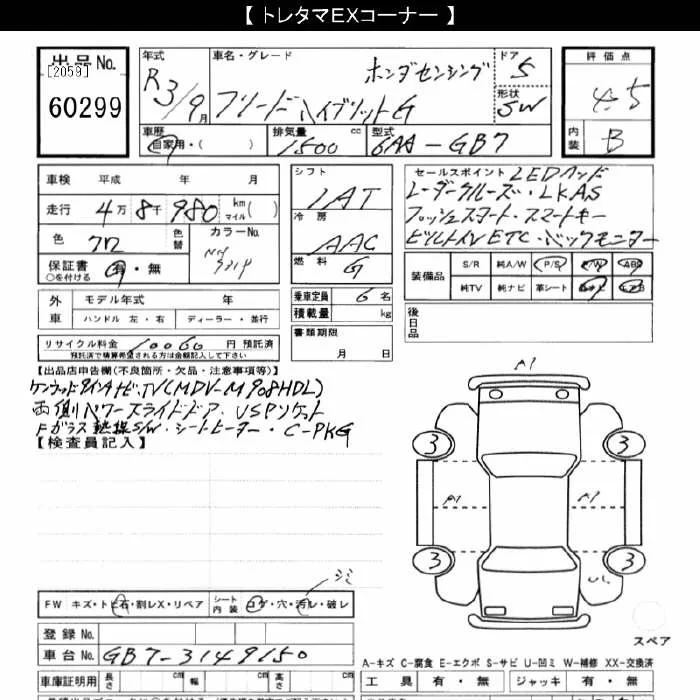 【 トレタマEXコーナー 】
出品No.
[2059]
60299
年式
R3/9月
車名・グレード
ホンダセンシング
フリードハイブリットG
ドア
5
形状
SW
評価点
4.5
内装
B
車歴
自家用・( )
排気量
1500 cc
型式
6AA-GB7
車検 平成 年 月
走行 4万8千980 km マイル( )
色 クロ
色替
カラーNo.
保証書 有・無
○を付ける
シフト
IAT
冷房
AAC
燃料
G
セールスポイント LEDヘッド
レーダークルーズ・LKAS
プッシュスタート・スマートキー
ビルトインETC・バックモニター
装備品
S/R 純A/W P/S P/W ABS
純TV 純ナビ 革シート
外車
モデル年式 年
ハンドル 左・右 ディーラー・並行
乗車定員 6名
積載量 kg
後日品
リサイクル料金 10060円 預託済
預託済で積算希望される方は金額記入して下さい
書類期限
月 日
【出品店申告欄(不良箇所・欠品・注意事項等)】
ケンウッド9インチナビ・TV(MDV-M908HDL)
両側パワースライドドア・USBソケット
Fガラス熱線S/W・シートヒーター・C-PKG
【検査員記入】
A1
3 3
A1 A1
3 3
シミ
FW キズ・トビ石・割レX・リペア
シート内装
コゲ・穴・汚レ・破レ
スペア
登録No.
車台No. GB7-3149150
A-キズ C-腐食 E-エクボ S-サビ U-凹ミ W-補修 XX-交換済
車庫証明用 長さ cm 幅 cm 高さ cm
工具 有・無 ジャッキ 有・無